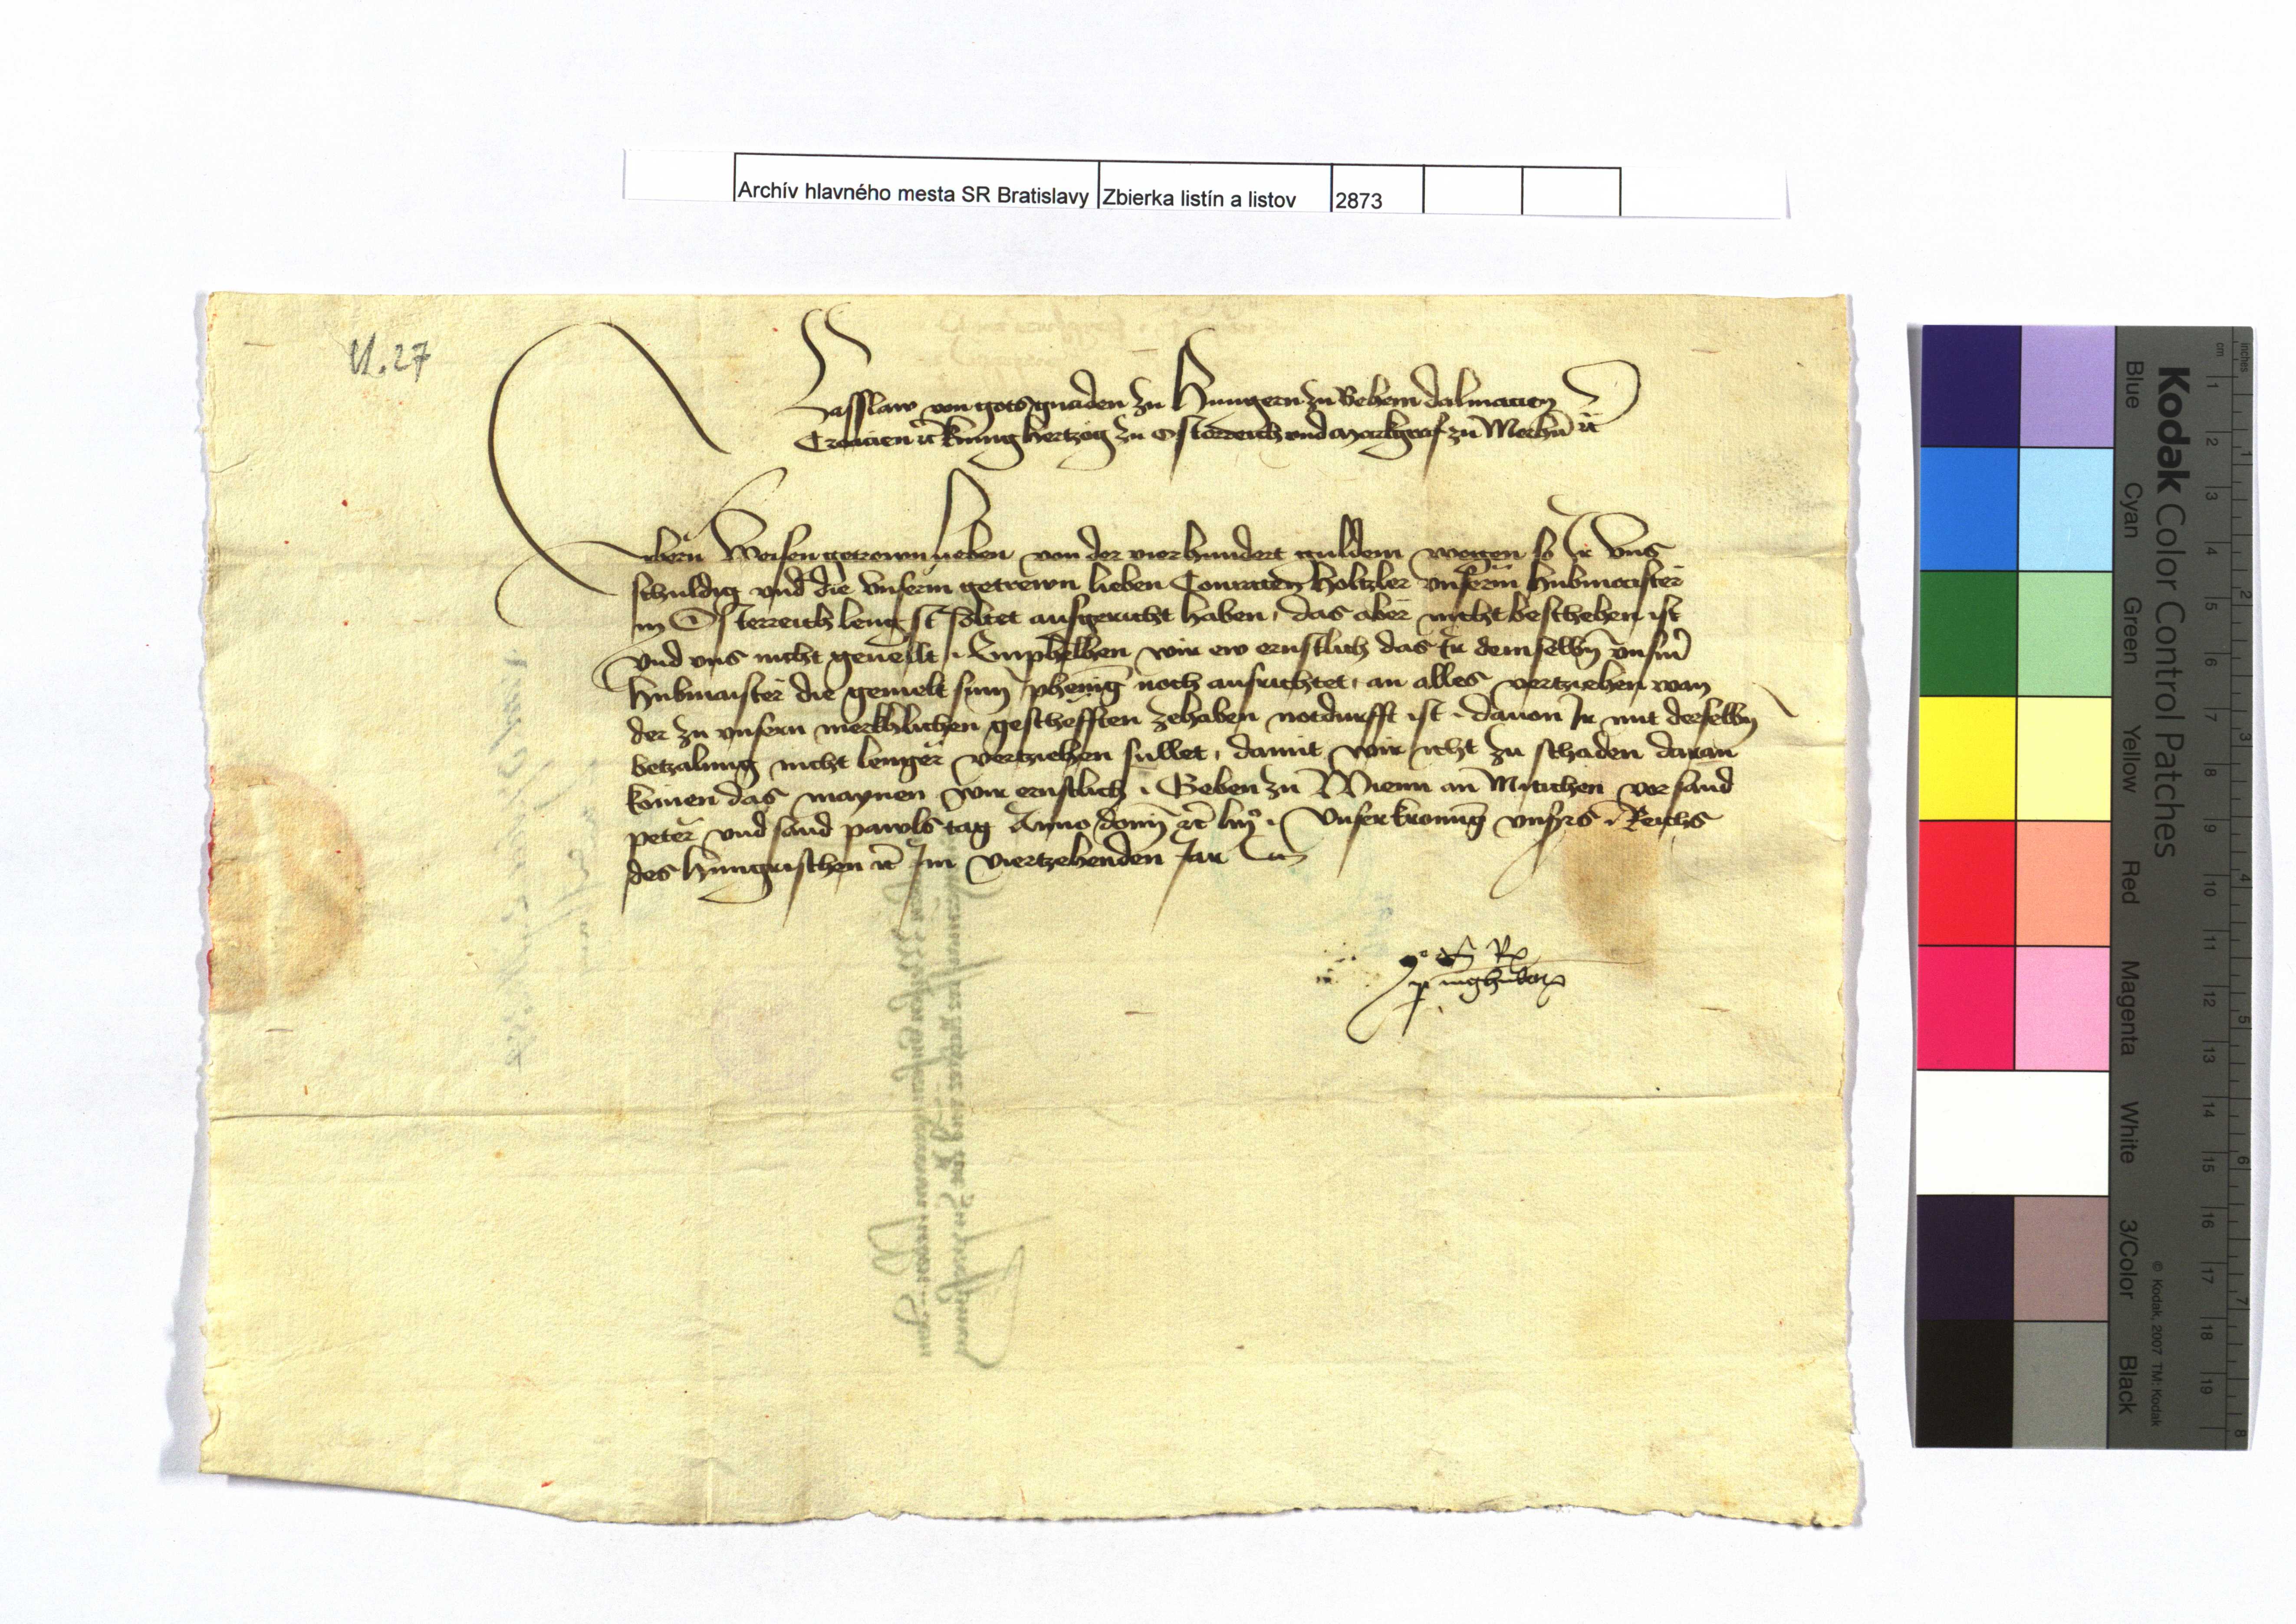 Archív hlavného mesta SR Bratislavy Zbierka listín a listov 2873
VI. 27
Lasslaw von gots gnaden zu Hungern zu Behem Dalmacien
Croacien ꝛc kunig Hertzog zu Osterreich vnd Markgraf zu Merhn̄ ꝛc
Erbern Weisen getrewn lieben von der vierhundert guldein wegen so Ir vns
schuldig vnd die vnserm getrewn lieben Conraten Holtzler vnserm Hubmaister
in Osterreich lengst soltet ausgericht haben, das aber nicht beschehen ist
vnd vns nicht geuellt. Emphelhen wir ew ernstlich das Ir demselbn̄ vnserm̄
Hubmaister die gemelt sum̄ phenig noch ausrichtet, an alles vertziehen wan
der zu vnsern merkhlichen geschefften zehaben notdurfft ist. dauon Ir mit derselbn̄
betzalung nicht lenger vertziehen sullet, damit wir icht zu schaden daran
komen das maynen wir ernstlich. Geben zu Wienn an Mittichen vor sand
peter vnd sand pawls tag Anno dom̄ ꝛc liiijᵒ. Vnser kronūg vnsers Reichs
des Hungrischen ꝛc Im viertzehenden Jar
Kodak Color Control Patches
Blue Cyan Green Yellow Red Magenta White 3/Color Black
© Kodak, 2007 TM: Kodak
inches 1 2 3 4 5 6 7 8
cm 1 2 3 4 5 6 7 8 9 10 11 12 13 14 15 16 17 18 19